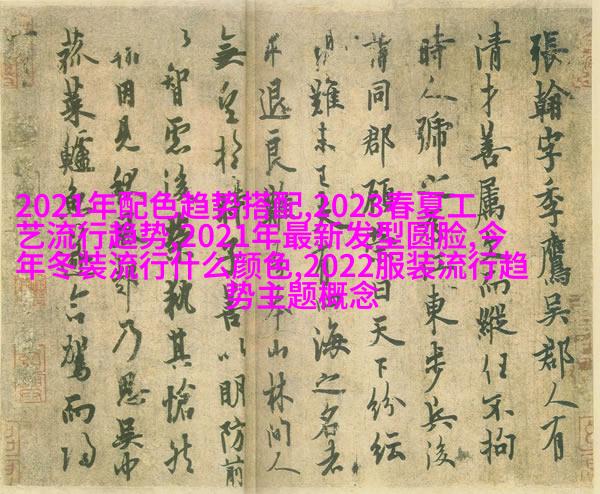 張翰字季鷹吳郡人有
清才善屬而縱任不拘
時人號東步兵後
同郡顧曰天下紛紜
難未海之名者
求退良難本山林間人
無望於子善以明防前
以智慮後執其愴然
翰因見乃思吳中
菰菜鱸命駕而歸
2021年配色趋势搭配,2023春夏工
艺流行趋势,2021年最新发型圆脸,今
年冬装流行什么颜色,2022服装流行趋
势主题概念